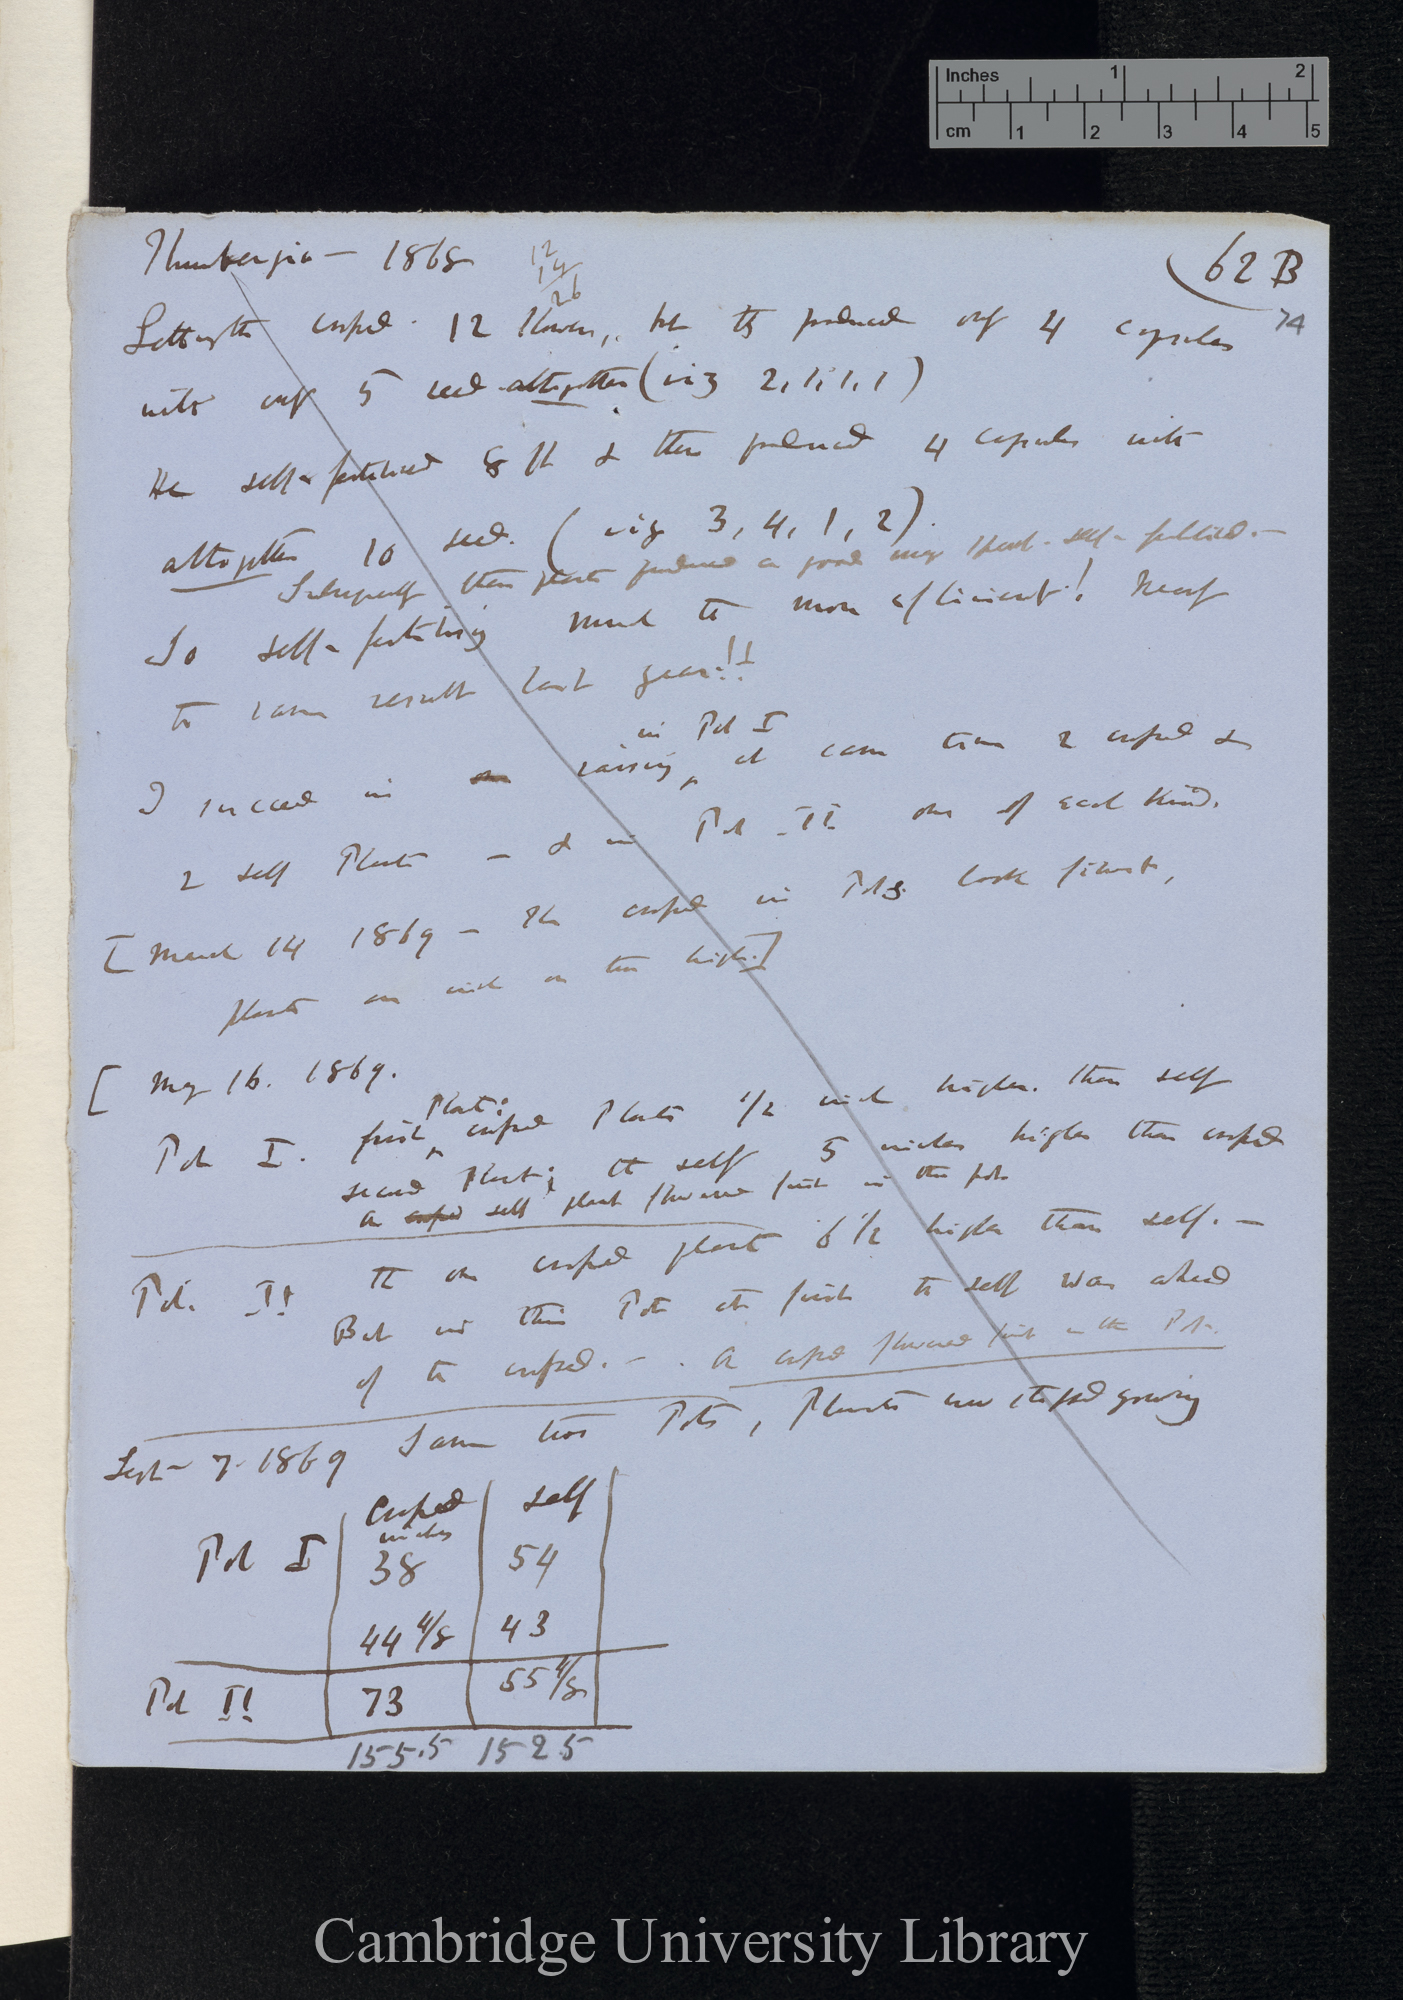 Inches 1 2
cm 1 2 3 4 5
Thunbergia — 1868
12
14
26
62 B
74
crossed 12 flowers, but they produced only 4 capsules
with only 5 seed altogether (viz 2, 1, 1, 1)
He self-fertilised 8 fl & these produced 4 capsules with
altogether 10 seed. (viz 3, 4, 1, 2).
Subsequently these plants produced a good many spont. self-fertilised. —
So self-fertilising much the more efficient! Nearly
the same result last year!!
I succeed in raising in Pot I at same time 2 crossed &
2 self Plants — & in Pot II one of each kind.
[March 14 1869 — The crossed in Pots look finest,
plants an inch or two high.]
[May 16. 1869.
Pot I. first Plant; crossed Plants 1/2 inch higher than self
second Plant; the self 5 inches higher than crossed
a crossed self plant flowered first in this pot
Pot. II the one crossed plant 6 1/2 higher than self. —
But in this Pot at first the self was ahead
of the crossed. — . A crossed flowered first in this Pot.
Sept — 7. 1869 Same two Pots, Plants now stopped growing
Crossed self
inches
Pot I 38 54
44 4/8 43
Pot II 73 55 4/8
155.5 152.5
Cambridge University Library